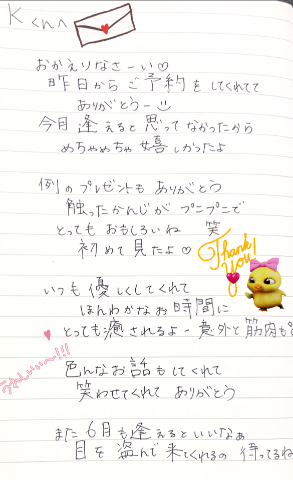 Kくんへ
おかえりなさーい♡
昨日からご予約をしてくれてて
ありがとうー
今月逢えると思ってなかったから
めちゃめちゃ嬉しかったよ
例のプレゼントもありがとう
触ったかんじがプニプニで
とってもおもしろいね 笑
初めて見たよ♡
Thank You!
いつも優しくしてくれて
ほんわかなお時間に
とっても癒されるよー意外と筋肉も
色んなお話もしてくれて
笑わせてくれてありがとう
また6月も逢えるといいなぁ
目を盗んで来てくれるの待ってるね